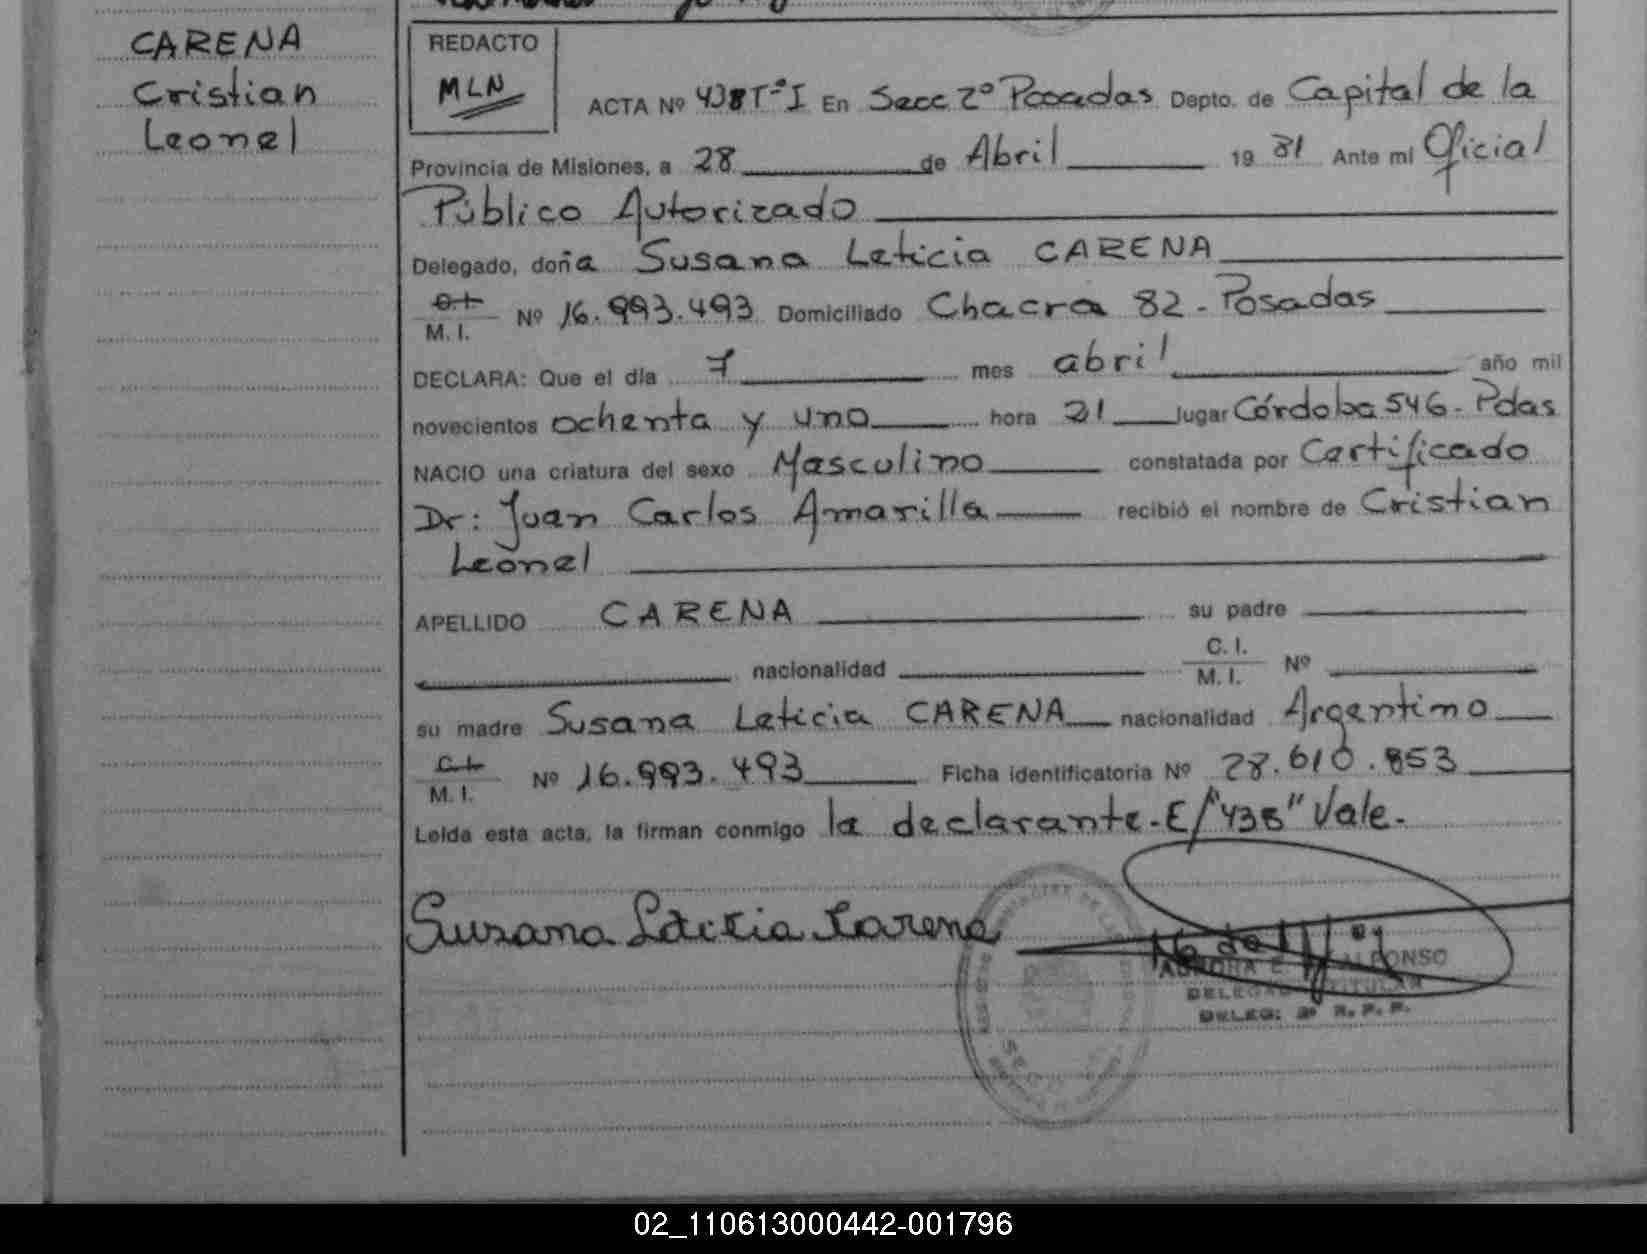 CARENA
Cristian
Leonel
REDACTO
MLN
ACTA Nº 438 Tº I En Secc 2º Posadas Depto. de Capital de la
Provincia de Misiones, a 28 de Abril 19 81 Ante mi Oficial
Público Autorizado
Delegado, doña Susana Leticia CARENA
C.I.
M. I. Nº 16.993.493 Domiciliado Chacra 82 - Posadas
DECLARA: Que el día 7 mes abril año mil
novecientos ochenta y uno hora 21 lugar Córdoba 546 - Pdas
NACIO una criatura del sexo Masculino constatada por Certificado
Dr: Juan Carlos Amarilla recibió el nombre de Cristian
Leonel
APELLIDO CARENA su padre
nacionalidad C. I.
M. I. Nº
su madre Susana Leticia CARENA nacionalidad Argentino
C.I.
M. I. Nº 16.993.493 Ficha identificatoria Nº 28.610.853
Leída esta acta, la firman conmigo la declarante - E/"438" Vale.
Susana Leticia Carena
ALFONSO
TITULAR
DELEG: 2º R. P. P.
02_110613000442-001796